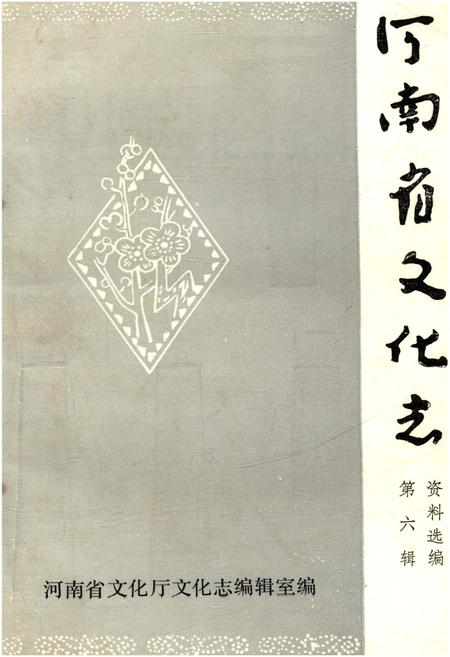 河南省文化志
资料选编
第六辑
河南省文化厅文化志编辑室编